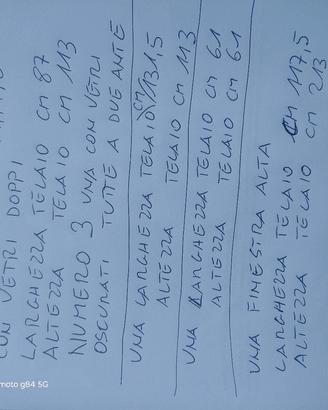 CON VETRI DOPPI
LARGHEZZA TELAIO CM 87
ALTEZZA TELAIO CM 113
NUMERO 3 UNA CON VETRI
OSCURATI TUTTE A DUE ANTE
UNA LARGHEZZA TELAIO CM 131,5
ALTEZZA TELAIO CM 113
UNA LARGHEZZA TELAIO CM 61
ALTEZZA TELAIO CM 61
UNA FINESTRA ALTA
LARGHEZZA TELAIO CM 117,5
ALTEZZA TELAIO CM 213
moto g84 5G